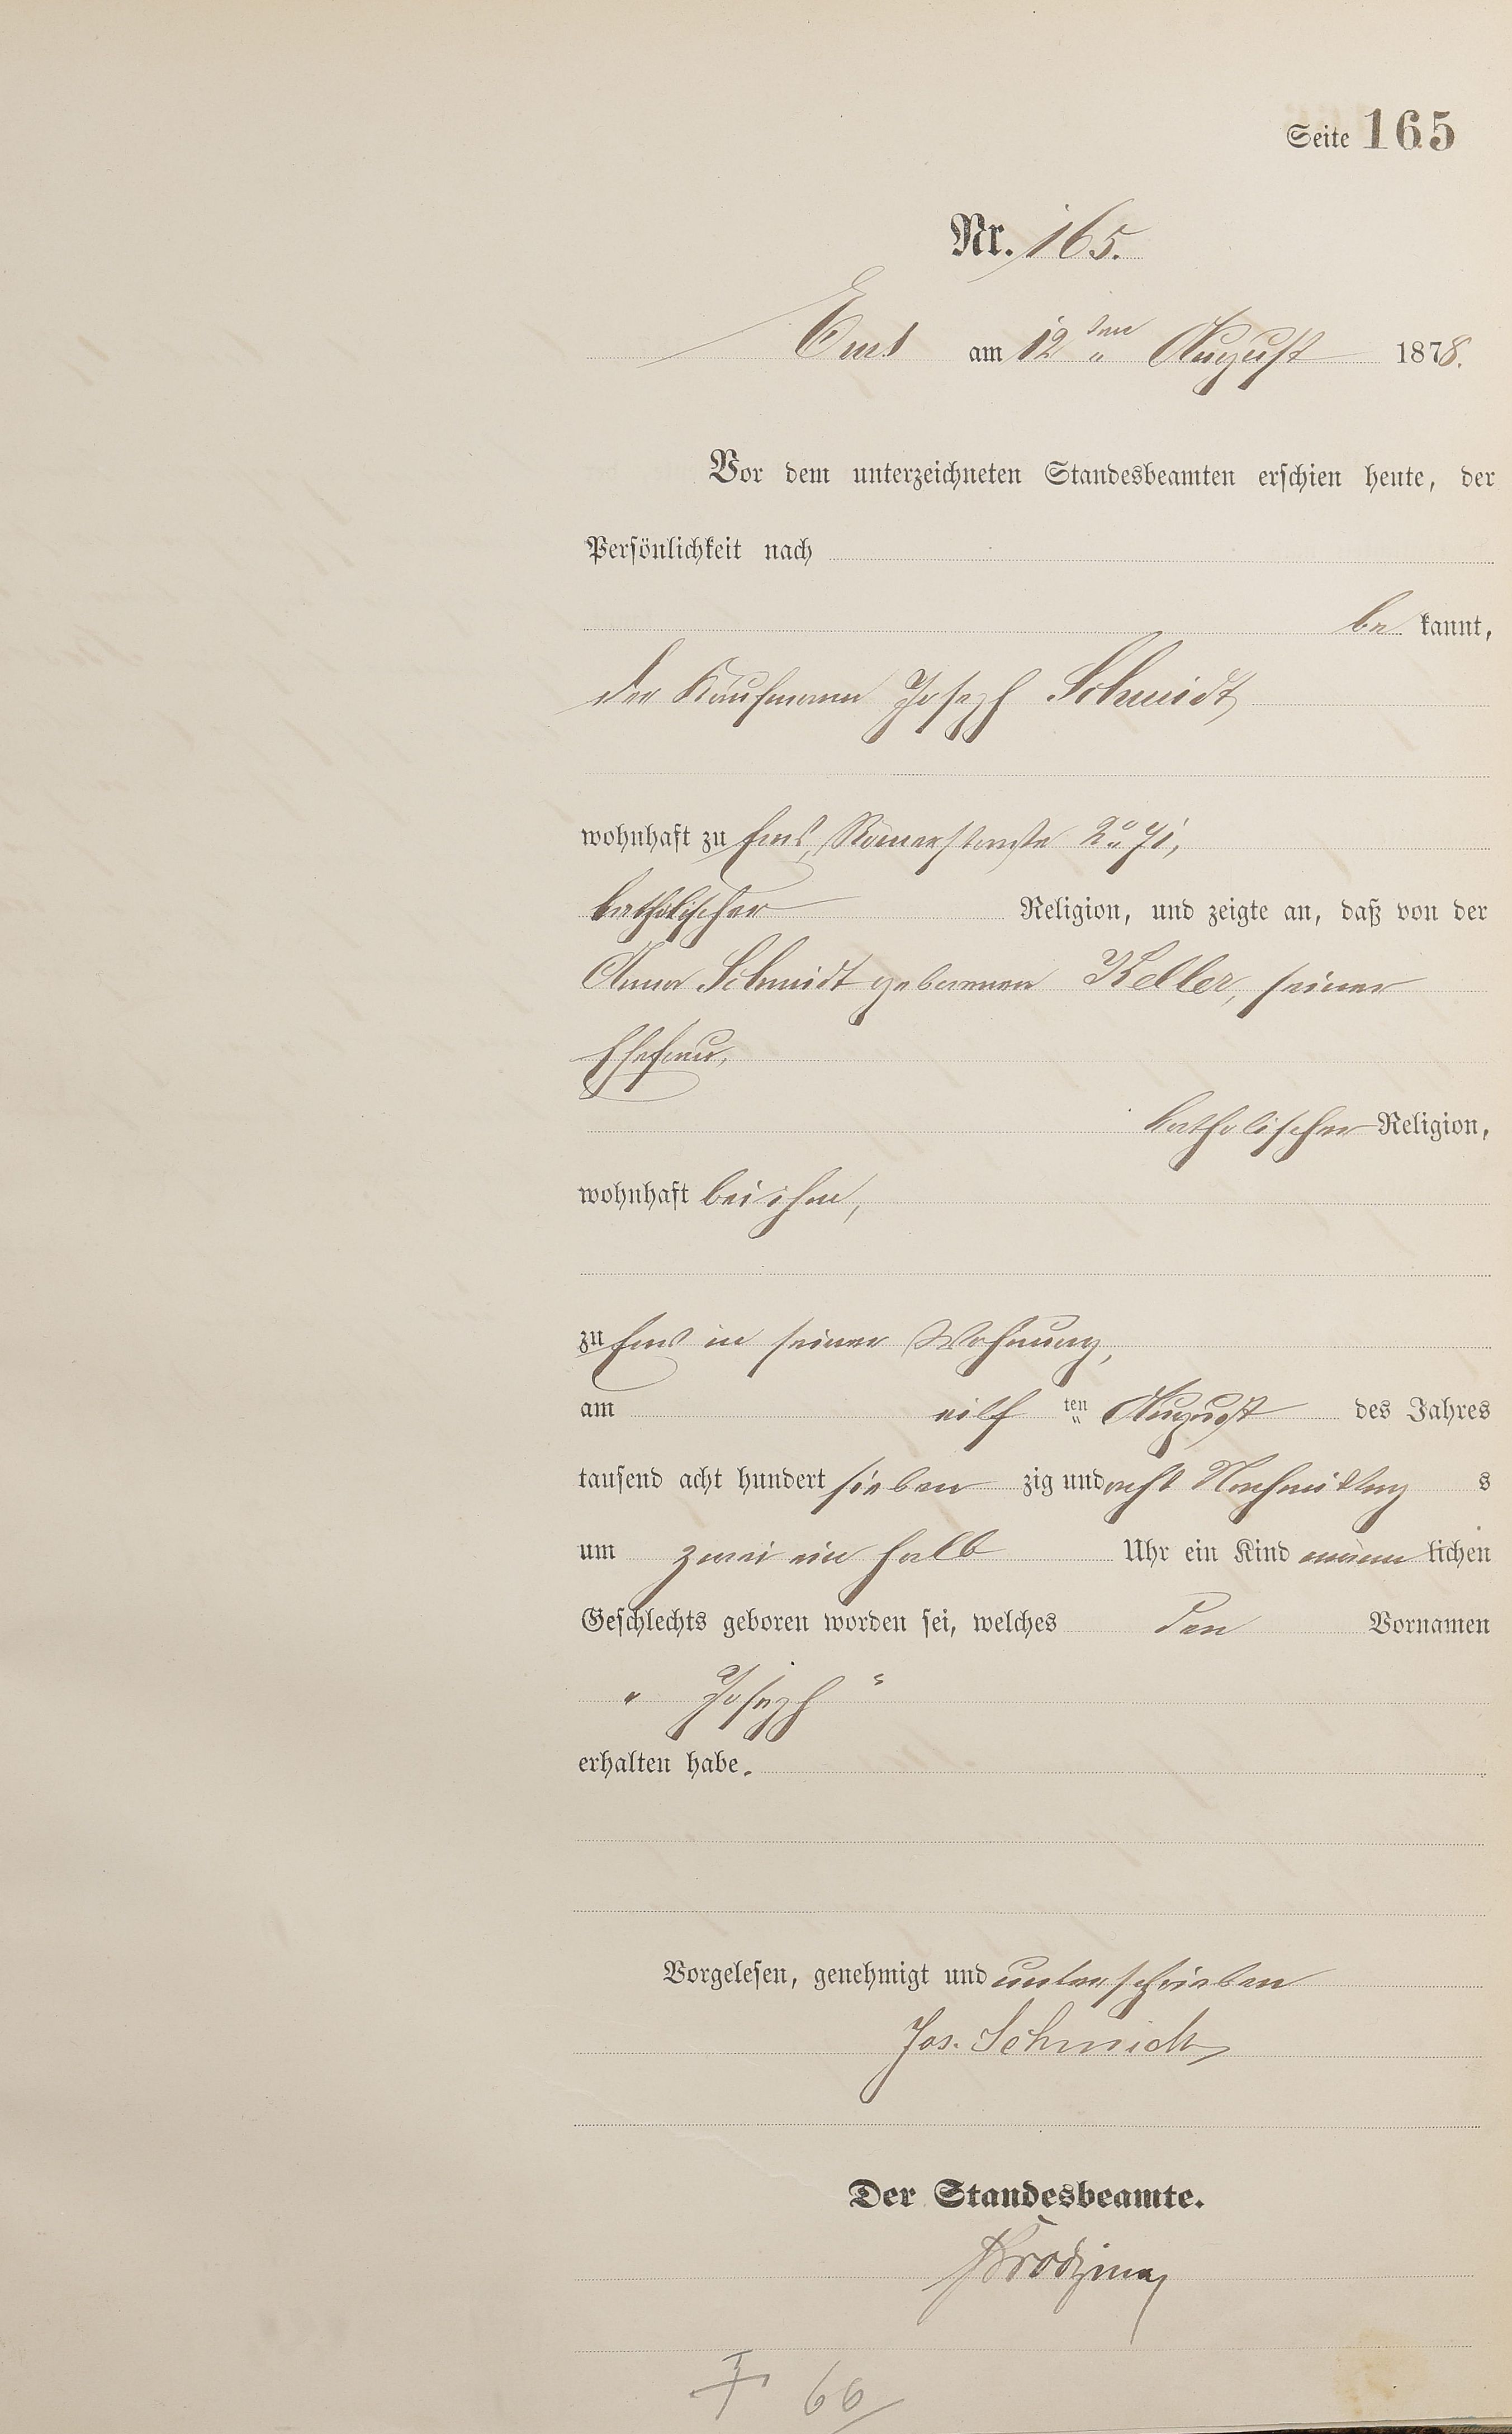 Seite 165
Nr. 165.
Ems am 12ten August 1878.
Vor dem unterzeichneten Standesbeamten erschien heute, der
Persönlichkeit nach
be kannt,
der Kaufmann Joseph Schmidt,
wohnhaft zu Ems, Römerstraße
katholischer Religion, und zeigte an, daß von der
Anna Schmidt geborenen Keller, seiner
Ehefrau,
katholischer Religion,
wohnhaft bei ihm,
zu Ems in seiner Wohnung,
am eilf ten August des Jahres
tausend acht hundert sieben zig und acht Nachmittag s
um zwei ein halb Uhr ein Kind männ lichen
Geschlechts geboren worden sei, welches den Vornamen
" Joseph "
erhalten habe.
Vorgelesen, genehmigt und unterschrieben
Jos. Schmidt
Der Standesbeamte.
66